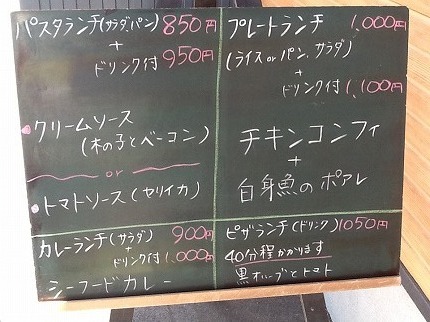 パスタランチ(サラダパン) 850円
+
ドリンク付 950円
・クリームソース
(木の子とベーコン)
or
・トマトソース(ヤリイカ)
プレートランチ 1,000円
(ライスorパン、サラダ)
+
ドリンク付 1,100円
チキンコンフィ
+
白身魚のポアレ
カレーランチ(サラダ) 900円
+
ドリンク付 1,000円
シーフードカレー
ピザランチ(ドリンク) 1050円
40分程かかります
黒オリーブとトマト